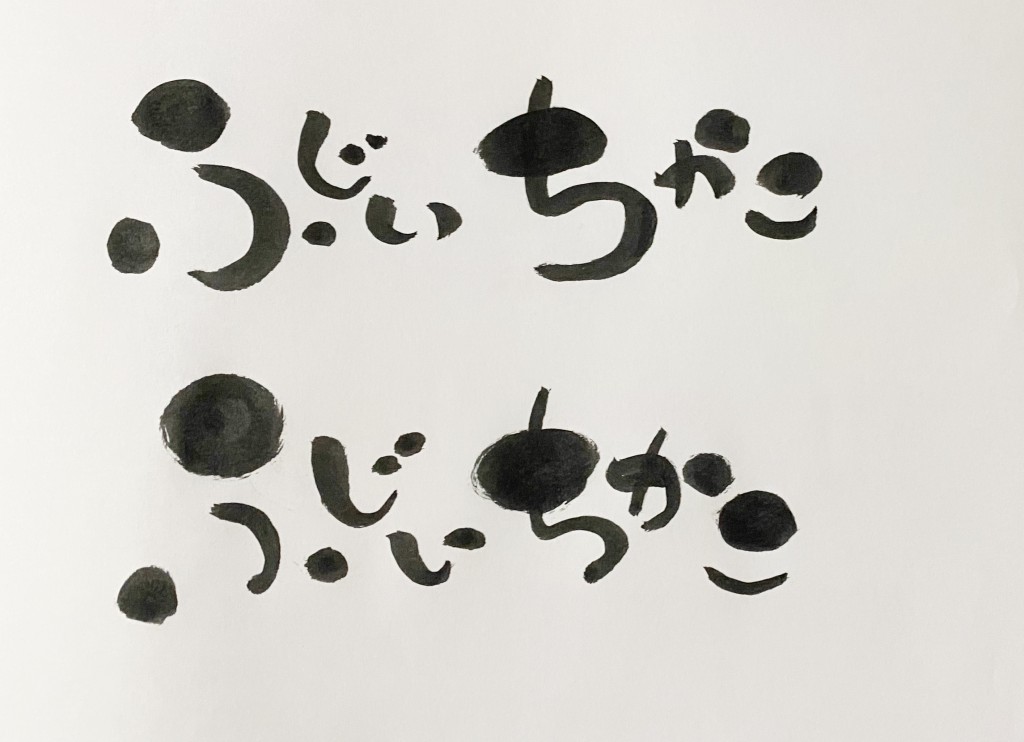 ふじい ちかこ
ふじい ちかこ